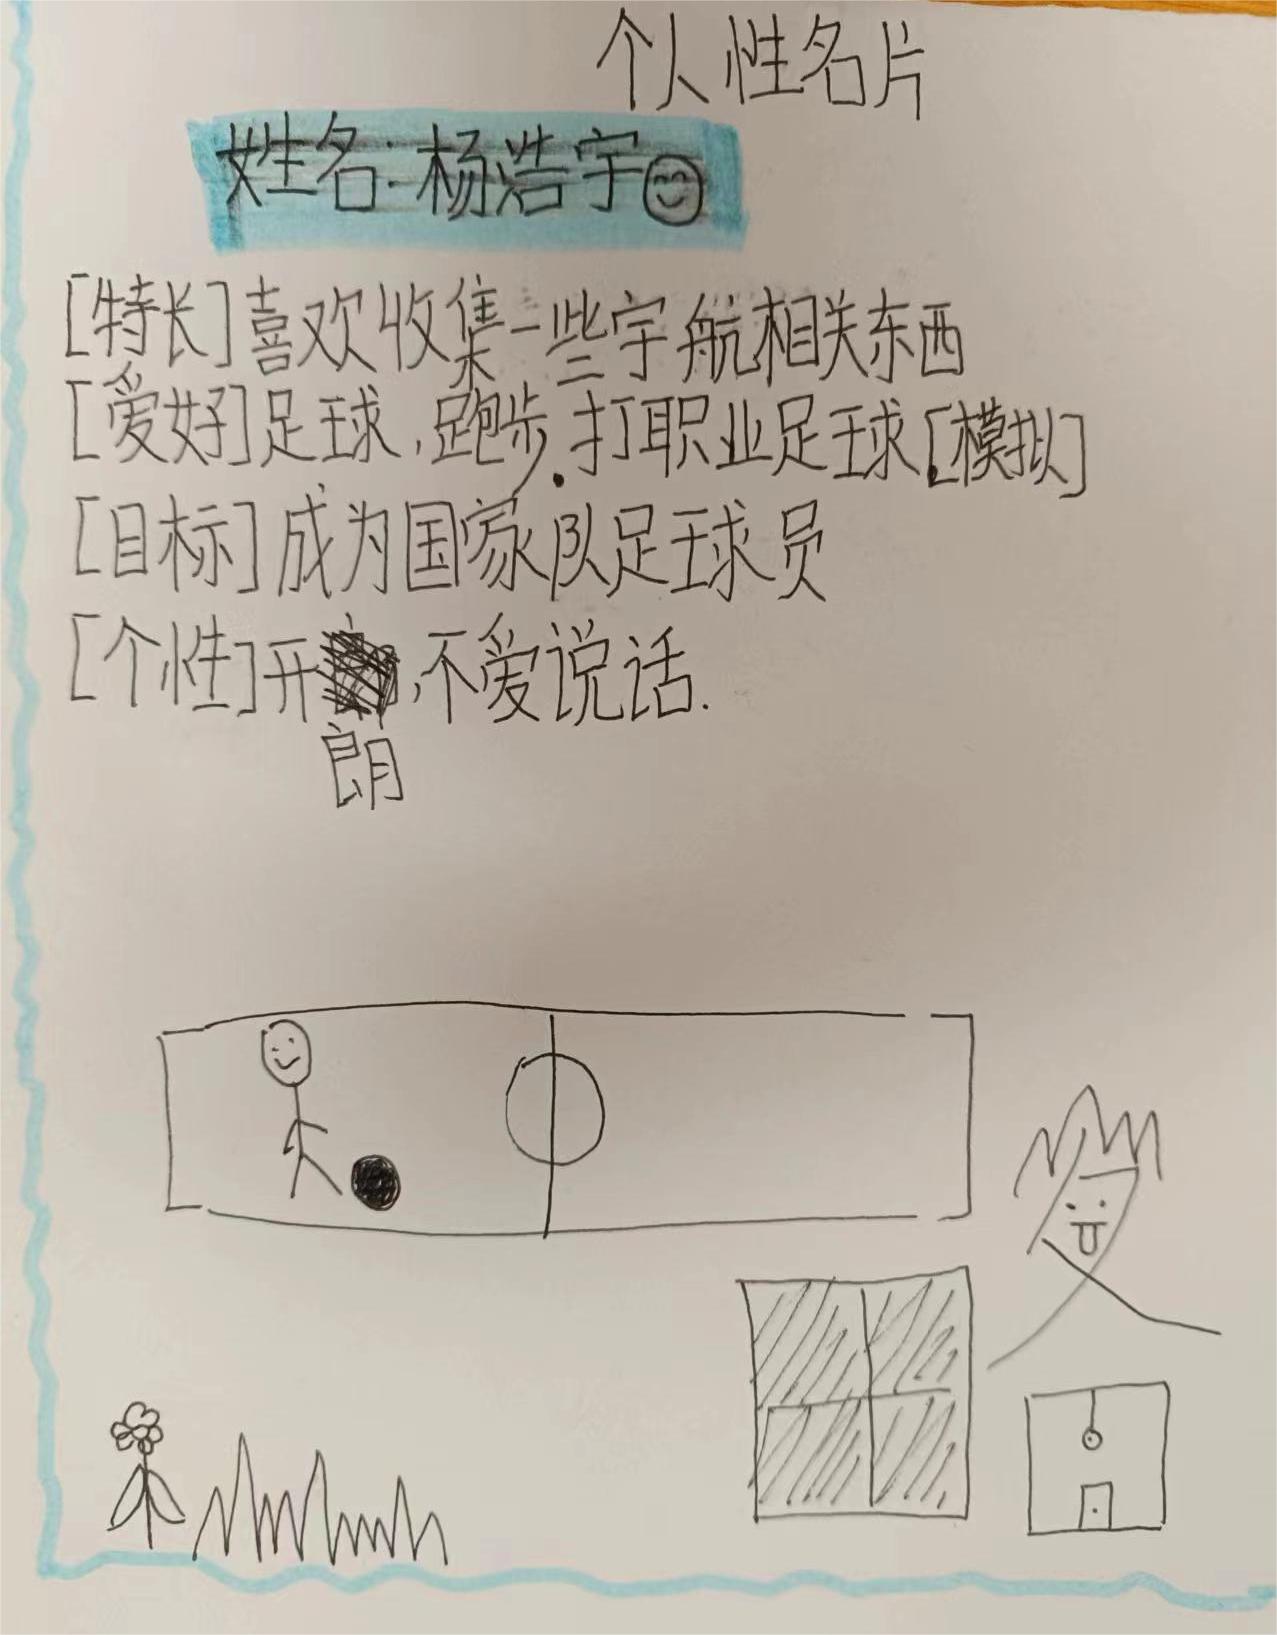 个人性名片
姓名:杨浩宇
[特长]喜欢收集一些宇航相关东西
[爱好]足球,跑步.打职业足球.[模拟]
[目标]成为国家队足球员
[个性]开朗,不爱说话.